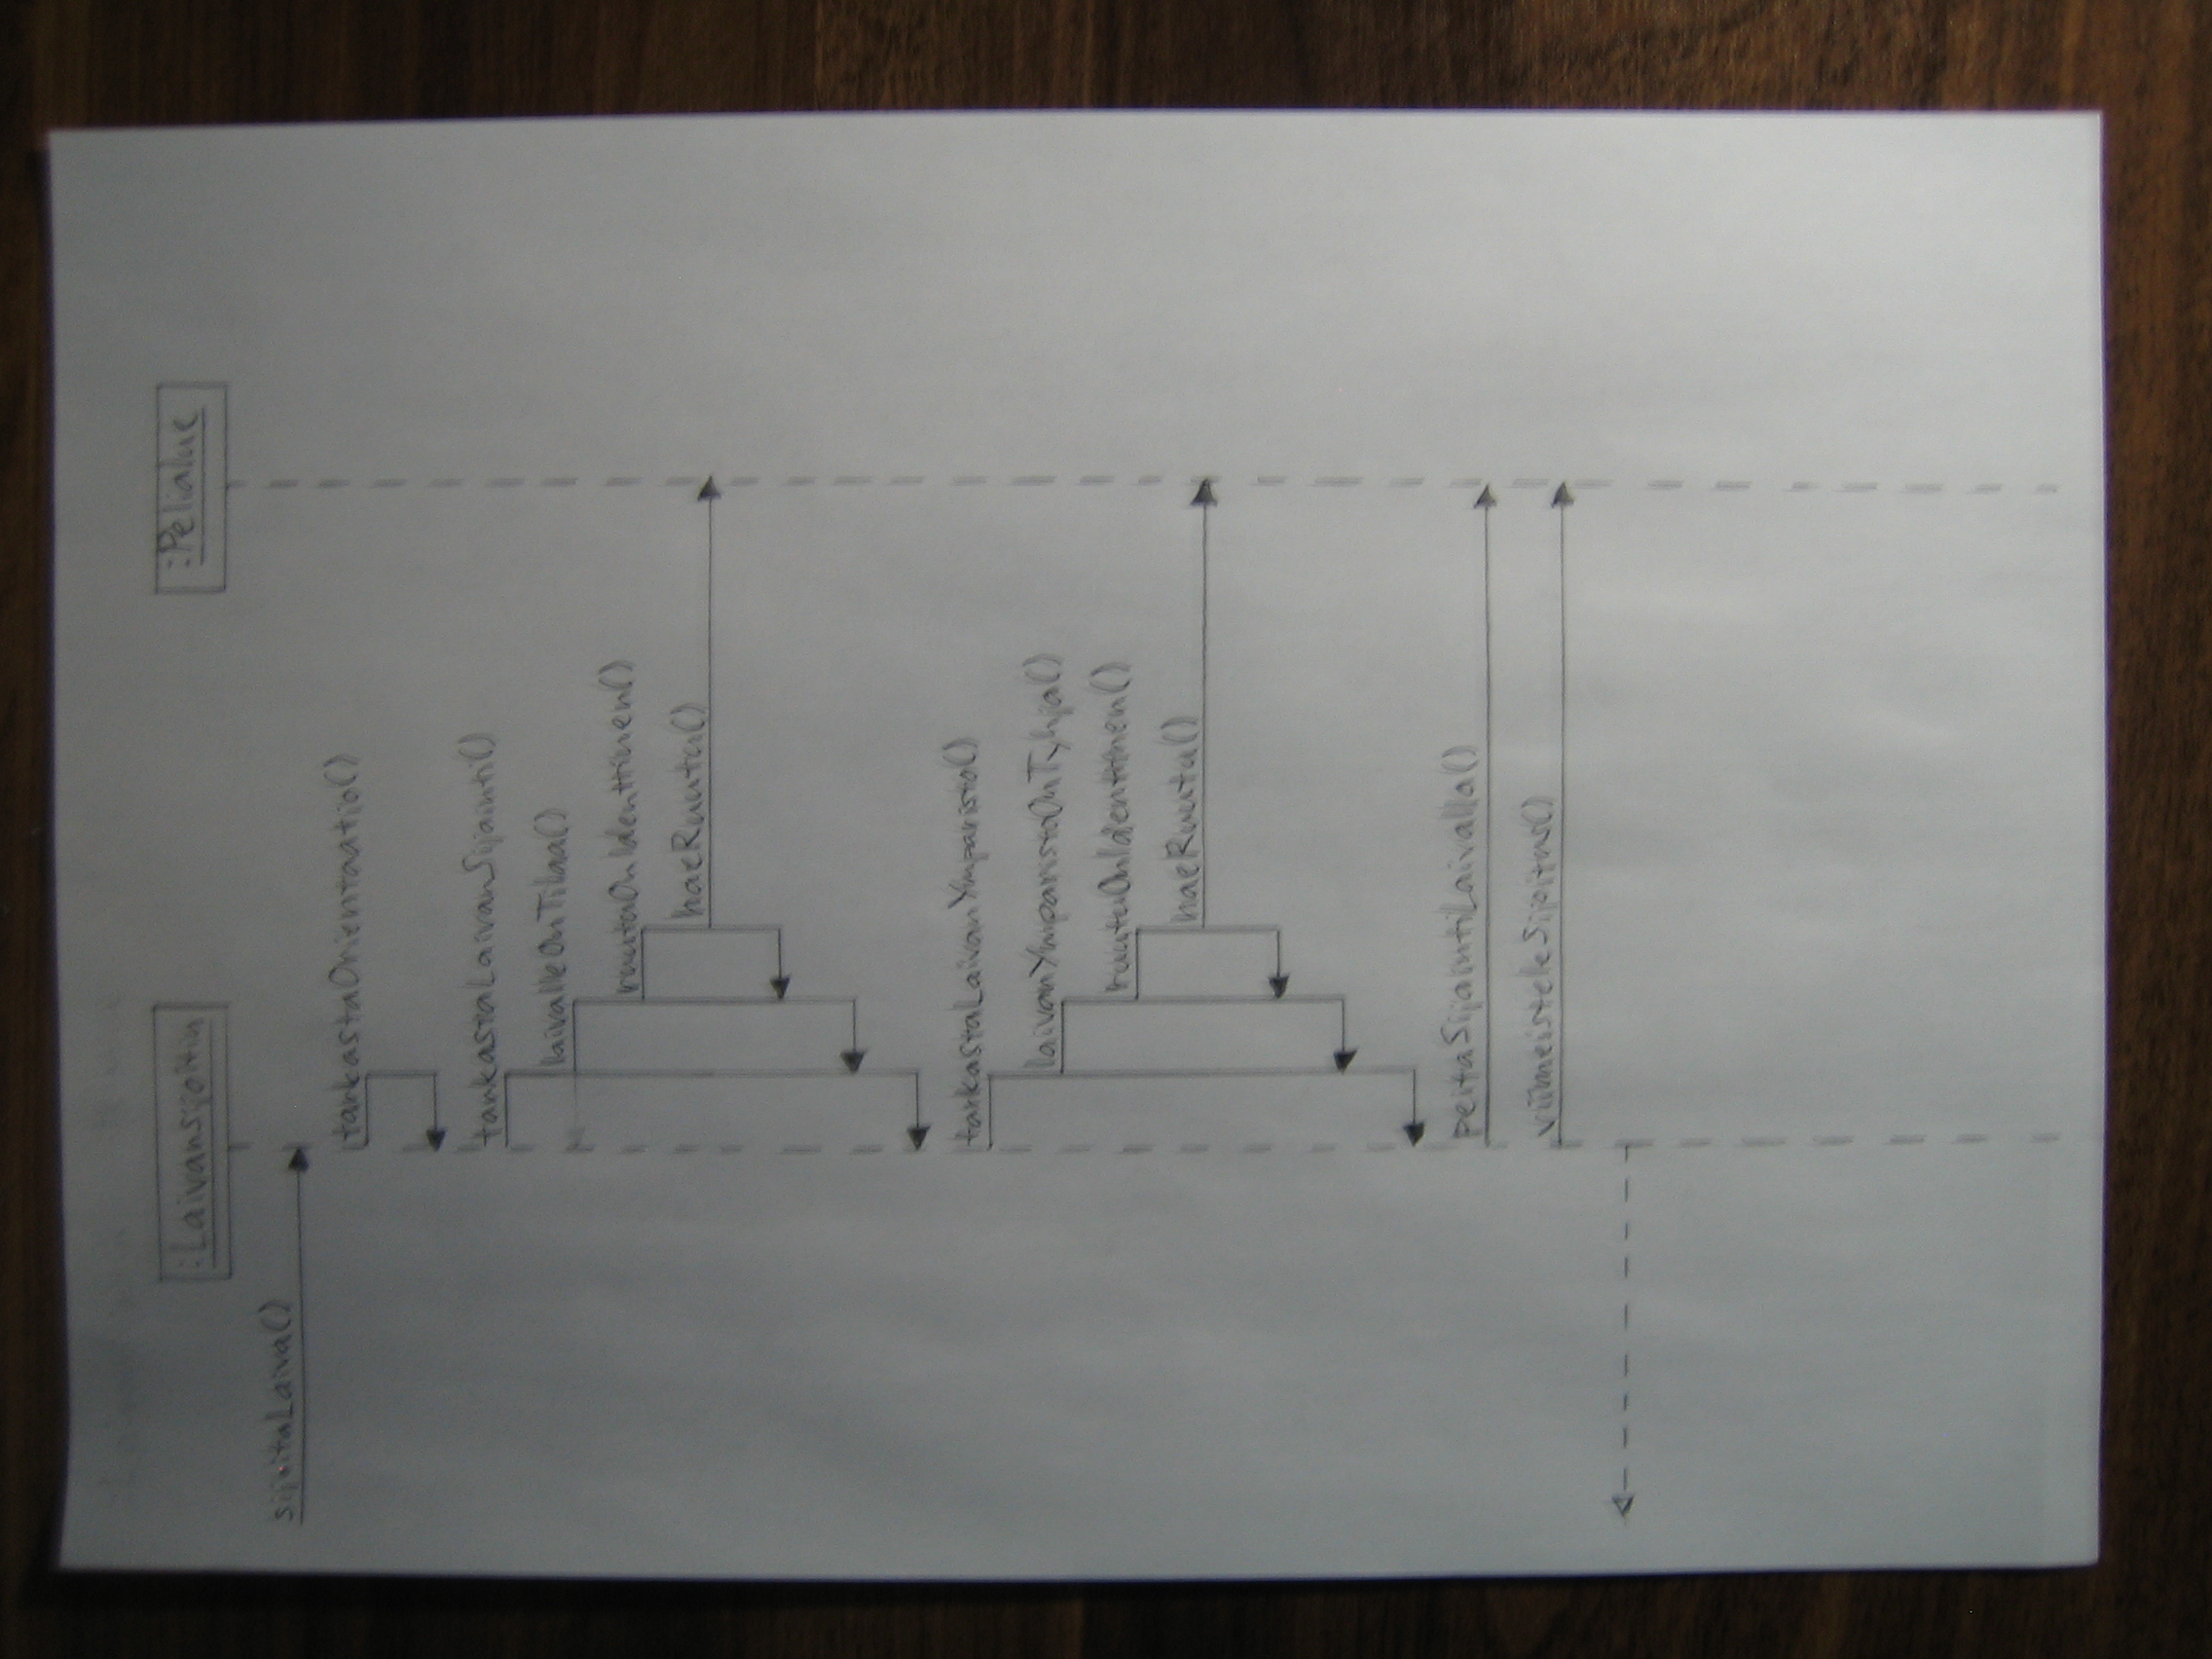 :LaivanSijoitin
:Pelialue
sijoitaLaiva()
tarkastaOrientaatio()
tarkastaLaivanSijainti()
laivalleOnTilaa()
ruutuOnIdenttinen()
haeRuutu()
tarkastaLaivanYmparisto()
laivanYmparistoOnTyhja()
ruutuOnIdenttinen()
haeRuutu()
peitaSijaintiLaivalla()
viimeisteleSijoitus()